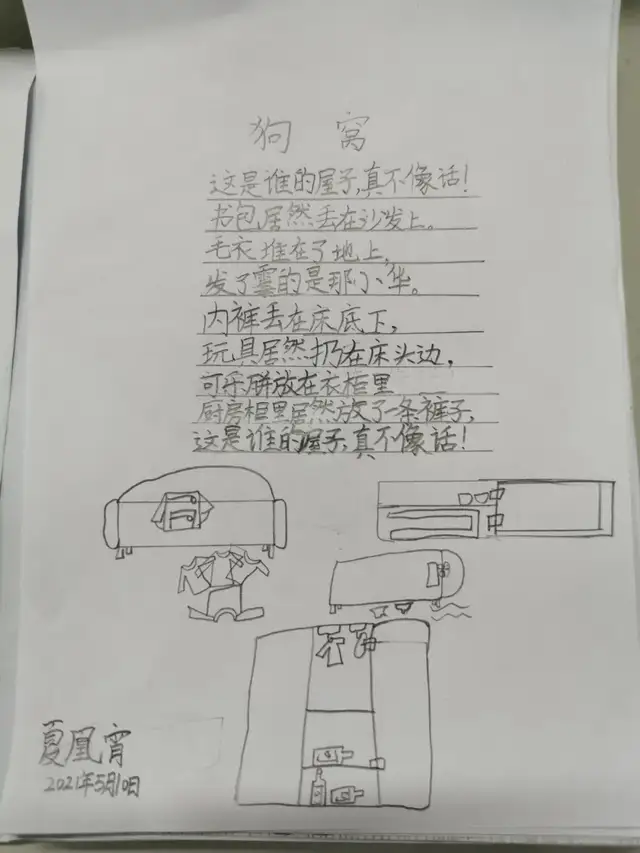 狗窝
这是谁的屋子,真不像话!
书包居然丢在沙发上。
毛衣堆在了地上,
发了霉的是那小华。
内裤丢在床底下,
玩具居然扔在床头边,
可乐瓶放在衣柜里
厨房柜里居然放了一条裤子,
这是谁的屋子,真不像话!
夏凰宵
2021年5月10日